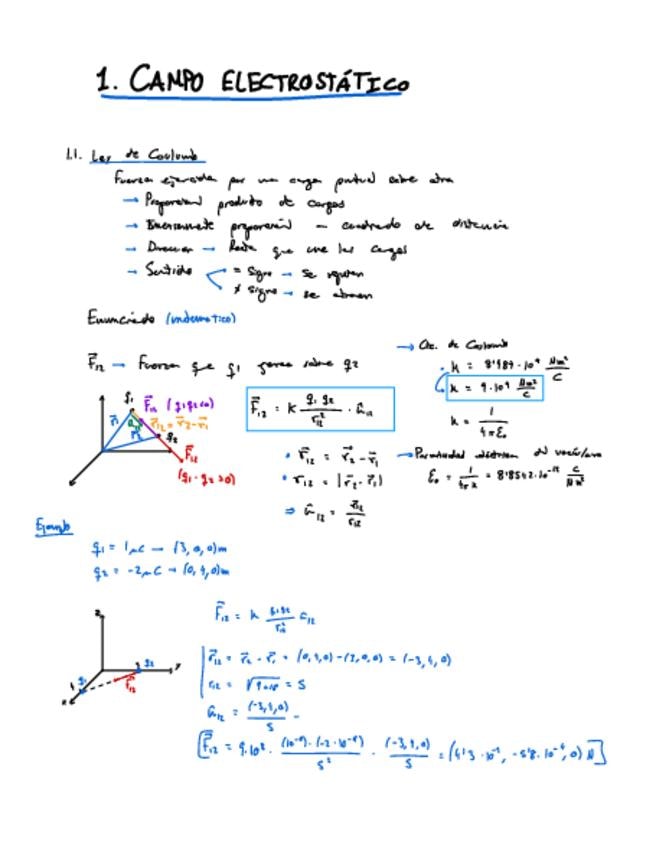 1. CAMPO ELECTROSTÁTICO
1.1. Ley de Coulomb
Fuerza ejercida por una carga puntual sobre otra
→ Proporcional producto de cargas
→ Inversamente proporcional cuadrado de distancia
→ Dirección → Recta que une las cargas
→ Sentido
= signo → se repelen
≠ signo → se atraen
Enunciado (matemático)
F⃗12 → Fuerza que q1 genera sobre q2
→ Cte. de Coulomb
K = 9·10⁹ Nm²/C
K = 1/4πε₀
q1
F⃗12 (q1·q2<0)
r⃗12 = r⃗2 - r⃗1
q2
F⃗12
(q1·q2>0)
F⃗12 = K q1·q2/r12² · û12
• r⃗12 = r⃗2 - r⃗1
• r12 = |r⃗2 - r⃗1|
⇒ û12 = r⃗12/r12
→ Permitividad del vacío
ε₀ = 1/4πK = 8'8542·10⁻¹² C/Nm²
Ejemplo
q1 = 1μC → (3,0,0)m
q2 = -2μC → (0,4,0)m
z
y
x
q1
q2
F⃗12
F⃗12 = K q1q2/r12² û12
r⃗12 = r⃗2 - r⃗1 = (0,4,0)-(3,0,0) = (-3,4,0)
r12 = √9+16 = 5
û12 = (-3,4,0)/5
F⃗12 = 9·10⁹ · (10⁻⁶)·(-2·10⁻⁶)/5² · (-3,4,0)/5